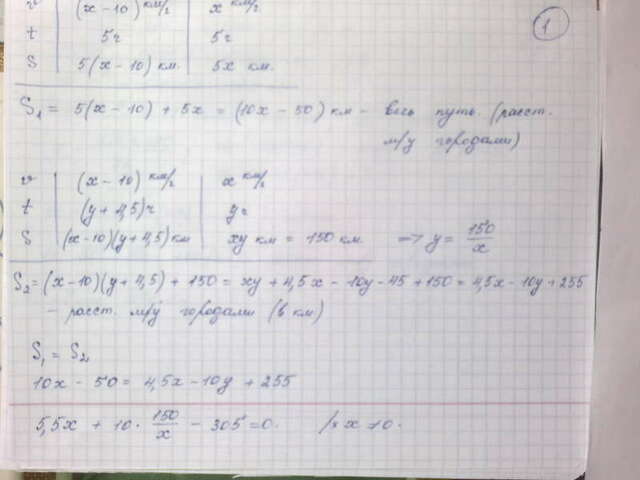 v | (x-10) км/ч | x км/ч
t | 5ч | 5ч
S | 5(x-10) км. | 5x км.
1
S₁ = 5(x-10) + 5x = (10x - 50) км - весь путь (расст.
м/у городами)
v | (x-10) км/ч | x км/ч
t | (y+4,5)ч | yч
S | (x-10)(y+4,5) км | xy км = 150 км. => y = 150/x
S₂ = (x-10)(y+4,5) + 150 = xy + 4,5x - 10y - 45 + 150 = 4,5x - 10y + 255
- расст. м/у городами (в км)
S₁ = S₂
10x - 50 = 4,5x - 10y + 255
5,5x + 10 · 150/x - 305 = 0. /× x ≠ 0.